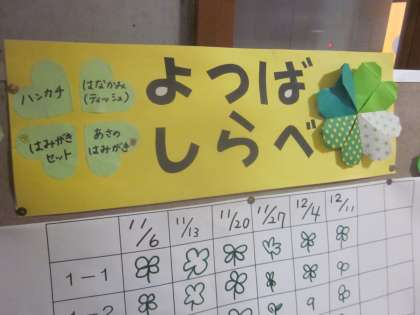 ハンカチ
はなかみ
(ティッシュ)
はみがき
セット
あさの
はみがき
よつば
しらべ
11/6 11/13 11/20 11/27 12/4 12/11
1-1
1-2 9